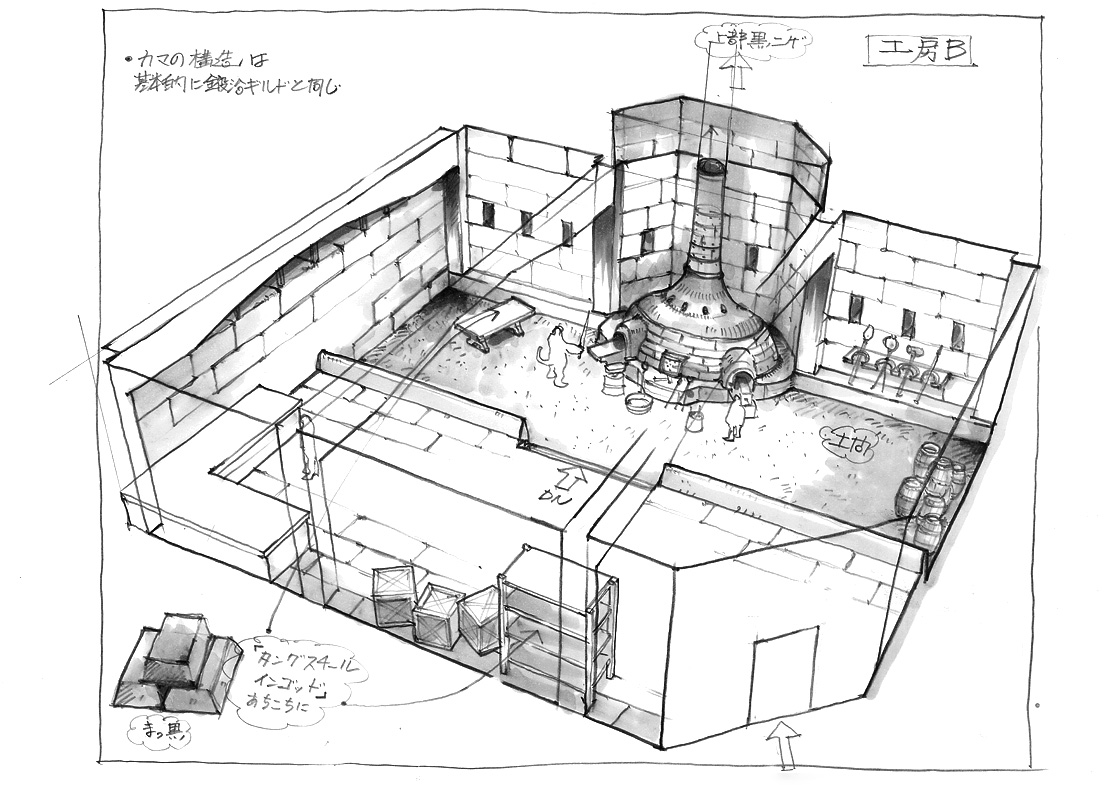 ・カマの構造は
基本的に鍛冶ギルドと同じ
上部黒ニゲ
工房B
土な
DN
「タングスチール
インゴッド」
あちこちに
まっ黒